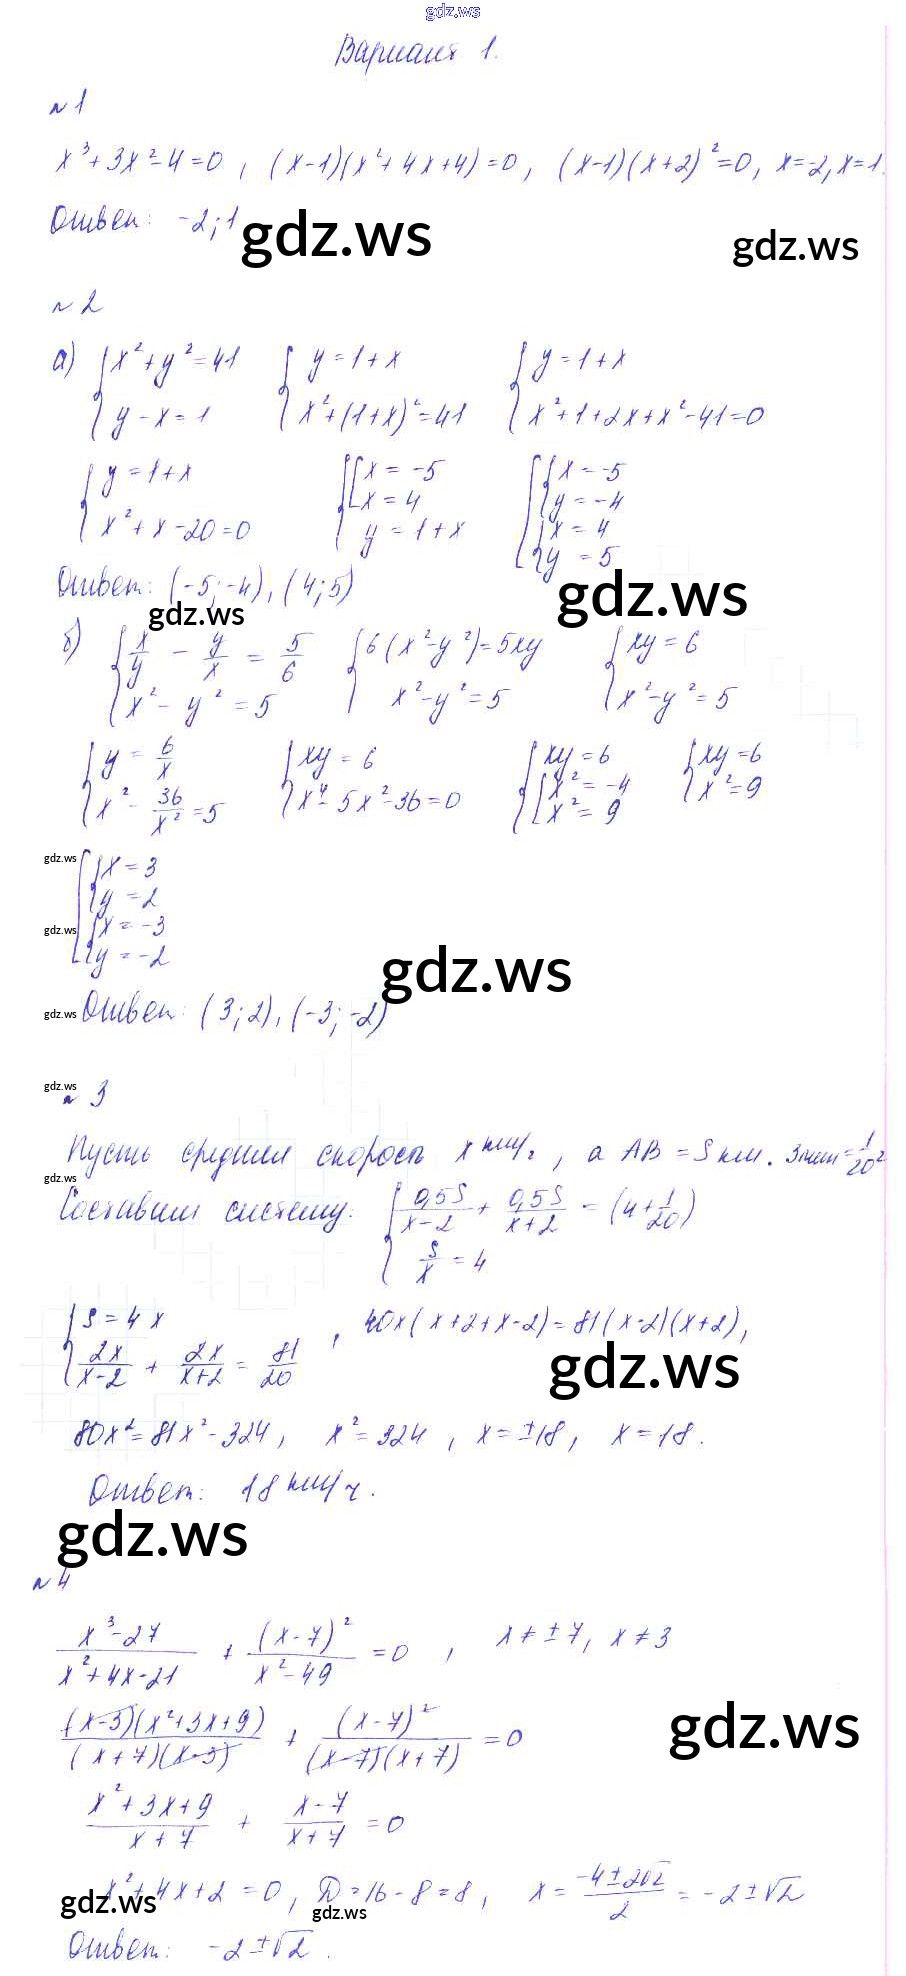 gdz.ws
Вариант 1.
№1
x³+3x²-4=0, (x-1)(x²+4x+4)=0, (x-1)(x+2)²=0, x=-2, x=1.
Ответ: -2; 1
gdz.ws gdz.ws
№2
а) {x²+y²=41 {y=1+x {y=1+x
y-x=1 x²+(1+x)²=41 x²+1+2x+x²-41=0
{y=1+x {[x=-5 [{x=-5
x²+x-20=0 x=4 y=-4
y=1+x {x=4
y=5
Ответ: (-5;-4), (4;5)
gdz.ws gdz.ws
б) {x/y - y/x = 5/6 {6(x²-y²)=5xy {xy=6
x²-y²=5 x²-y²=5 x²-y²=5
{y=6/x {xy=6 {xy=6 {xy=6
x²-36/x²=5 x⁴-5x²-36=0 [x²=-4 x²=9
x²=9
gdz.ws [{x=3
y=2
gdz.ws {x=-3
y=-2
gdz.ws
gdz.ws Ответ: (3;2), (-3;-2)
gdz.ws
№3
Пусть средняя скорость x км/ч, а AB=S км. 3мин=1/20ч
gdz.ws
Составим систему: {0,5S/(x-2) + 0,5S/(x+2) = (4+1/20)
S/x=4
{S=4x , 40x(x+2+x-2)=81(x-2)(x+2),
2x/(x-2) + 2x/(x+2) = 81/20
gdz.ws
80x²=81x²-324, x²=324, x=±18, x=18.
Ответ: 18 км/ч.
gdz.ws
№4
(x³-27)/(x²+4x-21) + (x-7)²/(x²-49) =0, x≠±7, x≠3
(x-3)(x²+3x+9)/(x+7)(x-3) + (x-7)²/(x-7)(x+7) =0
gdz.ws
(x²+3x+9)/(x+7) + (x-7)/(x+7) =0
x²+4x+2=0, D=16-8=8, x=(-4±2√2)/2=-2±√2
gdz.ws gdz.ws
Ответ: -2±√2.